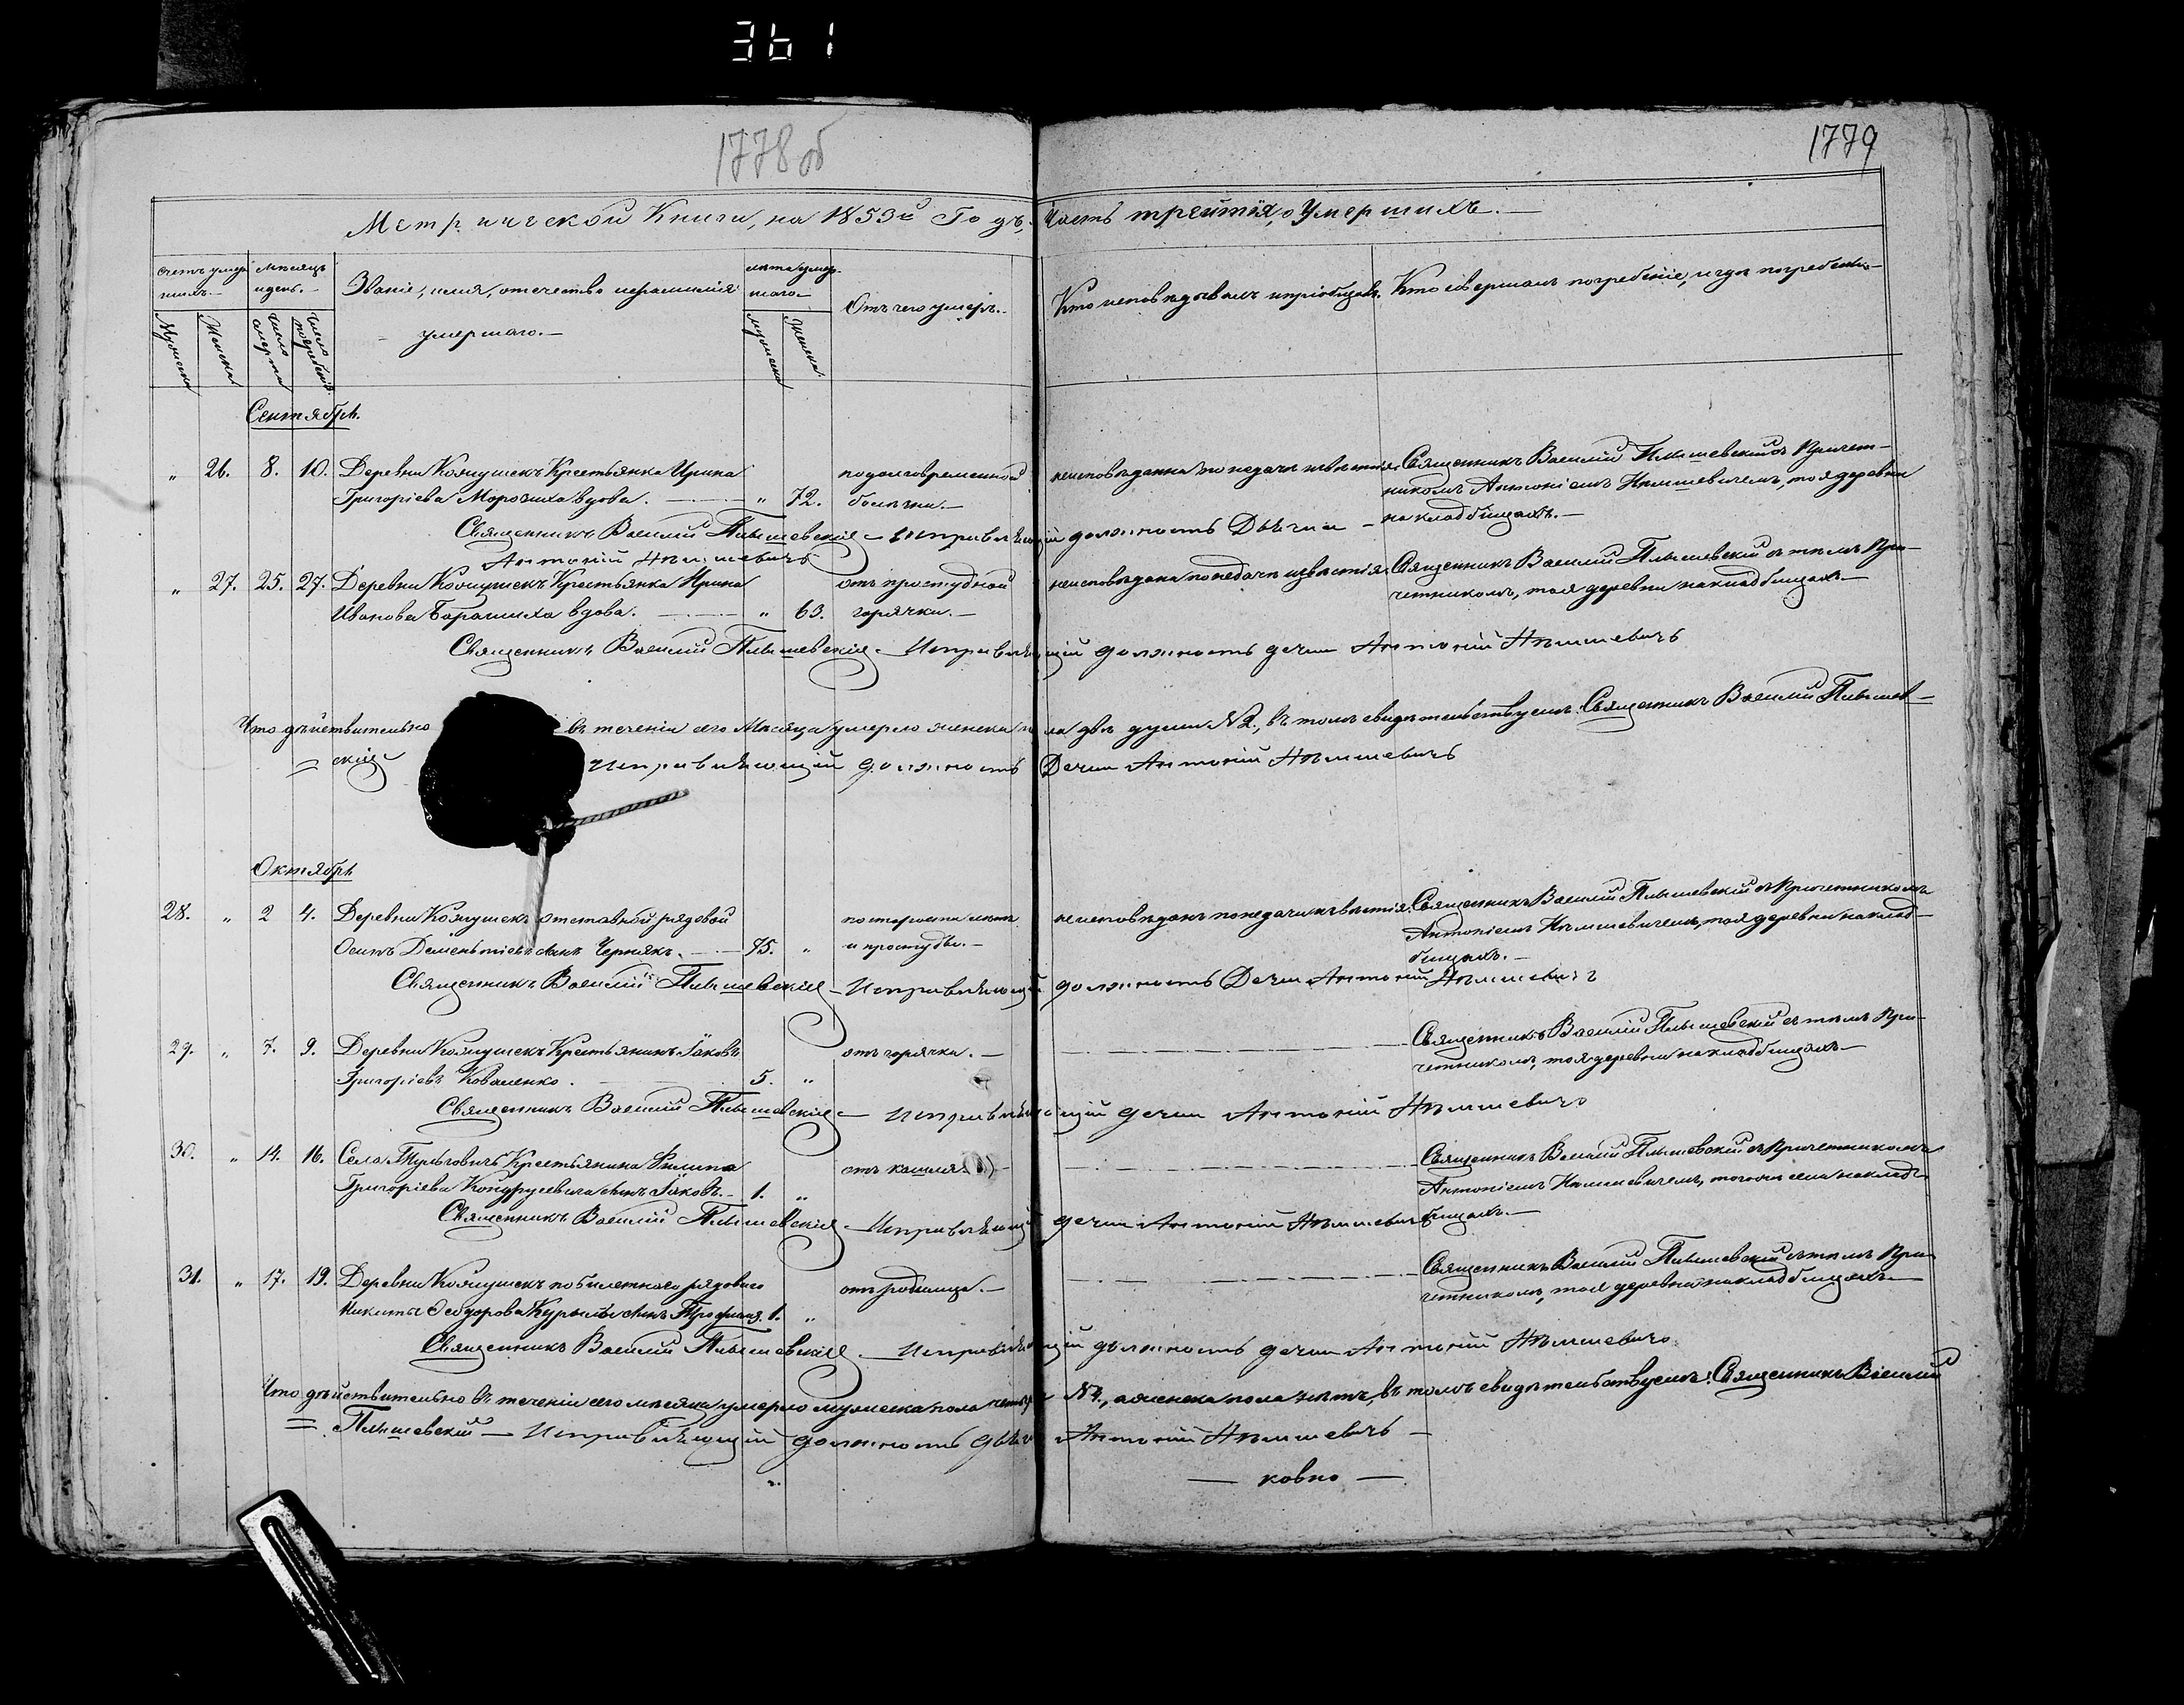 361
1778об
1779
Метрической Книги, на 1853й Годъ, Часть третія, о Умершихъ.—
Счетъ умершихъ.—
Мѣсяцъ и день.—
Званіе, имя, отечество и фамилія умершаго.—
Лѣта умершаго.—
Отъ чего умеръ.—
Кто исповѣдывалъ и пріобщалъ.
Кто совершалъ погребеніе, и гдѣ погребены.—
Мужска
Женска
Число смерти
Число погребенія
Мужска
Женска
Сентябрь.
„ 26. 8. 10. Деревни Кожушекъ Крестьянка Ирина
Григоріева Морозиха вдова. — „ 72.
подолговременной
болѣзни.—
неисповѣданна по недачѣ извѣстія.
Священникъ Василій Плышевскій съ Причет-
никомъ Антоніемъ Нѣмшевичемъ, тоя деревни
на кладбищахъ.—
Священникъ Василій Плышевскій — Исправляющій должность Дьячка —
Антоній Нѣмшевичъ
„ 27. 25. 27. Деревни Кожушекъ Крестьянка Ирина
Иванова Барашиха вдова. — „ 63.
отъ простудной
горячки.—
неисповѣдана по недачѣ извѣстія.
Священникъ Василій Плышевскій съ тѣмъ При-
четникомъ, тоя деревни на кладбищахъ.—
Священникъ Василій Плышевскій — Исправляющій должность дьячка Антоній Нѣмшевичъ
Что дѣйствительно въ теченіи сего Мѣсяца умерло женска пола двѣ души №2, въ томъ свидѣтельствуемъ: Священникъ Василій Плышев-
скій Исправляющій должность Дьячка Антоній Нѣмшевичъ
Октябрь
28. „ 2 4. Деревни Кожушекъ отставной рядовой
Осипъ Деменьтіевъ сынъ Чернякъ. — 75. „
по старости лѣтъ
и простуды.—
неисповѣданъ по недачи извѣстія.
Священникъ Василій Плышевскій съ Причетникомъ
Антоніемъ Нѣмшевичемъ, тоя деревни на клад-
бищахъ.—
Священникъ Василій Плышевскій — Исправляющій должность Дьячка Антоній Нѣмшевичъ
29. „ 7. 9. Деревни Кожушекъ Крестьянинъ Іаковъ
Григоріевъ Коваленко. 5. „
отъ горячки.—
Священникъ Василій Плышевскій съ тѣмъ При-
четникомъ, тоя деревни на кладбищахъ—
Священникъ Василій Плышевскій — Исправляющій дьячка Антоній Нѣмшевичъ
30. „ 14. 16. Села Тульговичъ Крестьянина Филипа
Григоріева Кондрусевича сынъ Іаковъ.— 1. „
отъ кашля.
Священникъ Василій Плышевскій съ Причетникомъ
Антоніемъ Нѣмшевичемъ, тогожъ села на клад-
бищахъ.—
Священникъ Василій Плышевскій — Исправляющій дьячка Антоній Нѣмшевичъ
31. „ 17. 19. Деревни Кожушекъ побилетнаго рядоваго
Никиты Ѳеодорова сынъ 1. „
отъ родимца.—
Священникъ Василій Плышевскій съ тѣмъ При-
четникомъ, тоя деревни на кладбищахъ.—
Священникъ Василій Плышевскій — Исправляющій должность дьячка Антоній Нѣмшевичъ
Что дѣйствительно въ теченіи сего мѣсяца умерло мужеска пола четыре №4, а женска пола нѣтъ, въ томъ свидѣтельствуемъ: Священникъ Василій
Плышевскій — Исправляющій должность дьячка Антоній Нѣмшевичъ —
— ковно —